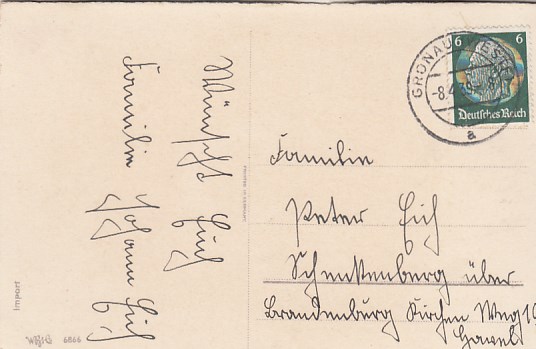 Wünscht Euch
Familie Johann Eich
Familie
Peter Eich
Schmettenberg über
Brandenburg Kirchen Weg 19
Havel
GRONAU (WESTF)
-8.4.39
a
6 6
Deutsches Reich
Import
6866